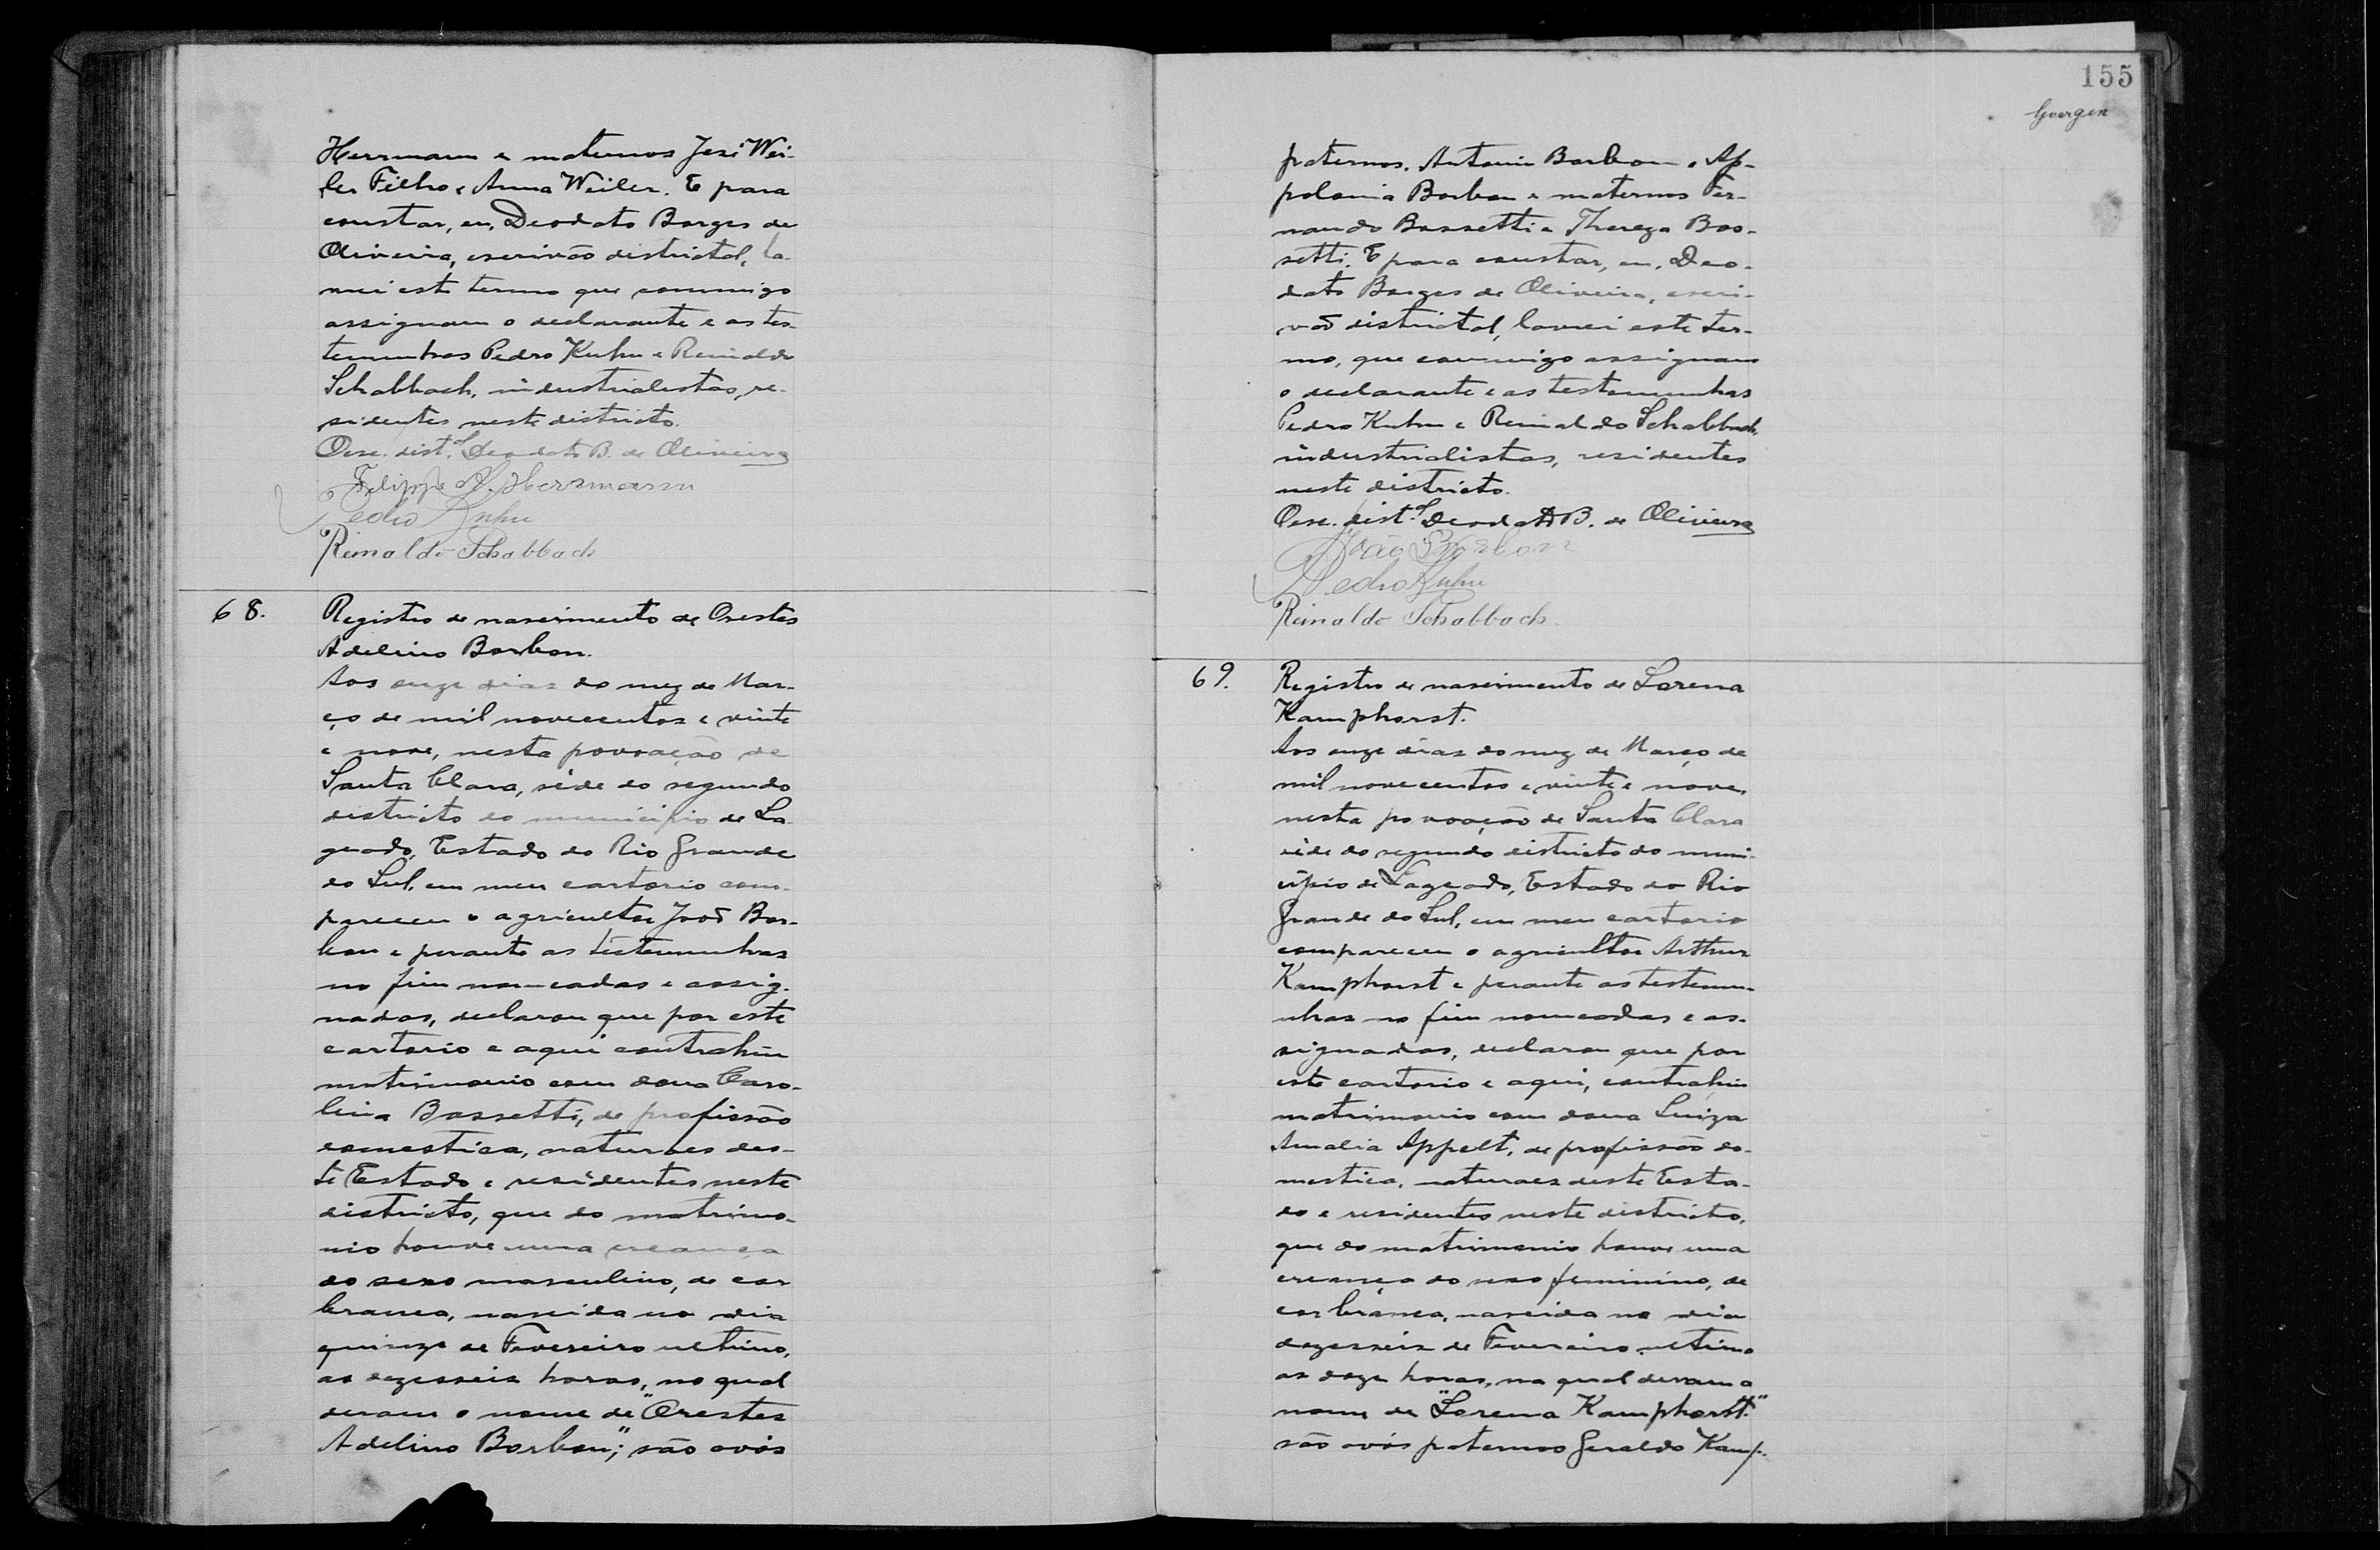 Herrmann e maternos José Wei-
ler Filho e Anna Weiler. E para
constar, eu, Deodato Borges de
Oliveira, escrivão districtal, la-
vrei este termo que commigo
assignam o declarante e as tes-
temunhas Pedro Kuhn e Reinaldo
Schabbach, industrialistas, re-
sidentes neste districto.
Oesc. dist.al Deodato B. de Oliveira
Felippe A. Herrmann
Pedro Kuhn
Reinaldo Schabbach
68.
Registro de nascimento de Orestes
Adelino Borbon.
Aos onze dias do mez de Mar-
ço de mil novecentos e vinte
e nove, nesta povoação de
Santa Clara, séde do segundo
districto do municipio de La-
geado, Estado do Rio Grande
do Sul, em meu cartorio com-
pareceu o agricultor João Bor-
bon e perante as testemunhas
no fim nomeadas e assig-
nadas, declarou que por este
cartorio e aqui contrahiu
matrimonio com dona Caro-
lina Bassetti, de profissão
domestica, naturaes des-
te Estado e residentes neste
districto, que do matrimo-
nio houve uma creança
do sexo masculino, de cor
branca, nascida no dia
quinze de Fevereiro ultimo,
as dezesseis horas, no qual
deram o nome de "Orestes
Adelino Borbon"; são avós
155
Goergen
paternos, Antonio Borbon e Ap-
polonia Borbon e maternos Fer-
nando Bassetti e Thereza Bas-
setti. E para constar, eu, Deo-
dato Borges de Oliveira, escri-
vão districtal, lavrei este ter-
mo, que commigo assignam
o declarante e as testemunhas
Pedro Kuhn e Reinaldo Schabbach,
industrialistas, residentes
neste districto.
Oesc. dist.al Deodato B. de Oliveira
João Borbon
Pedro Kuhn
Reinaldo Schabbach.
69.
Registro de nascimento de Lorena
Kamphorst.
Aos onze dias do mez de Março de
mil novecentos e vinte e nove,
nesta povoação de Santa Clara
séde do segundo districto do muni-
cipio de Lageado, Estado do Rio
Grande do Sul, em meu cartorio
compareceu o agricultor Arthur
Kamphorst e perante as testemu-
nhas no fim nomeadas e as-
signadas, declarou que por
este cartorio e aqui, contrahiu
matrimonio com dona Luiza
Amalia Appelt, de profissão do-
mestica, naturaes deste Esta-
do e residentes neste districto,
que do matrimonio houve uma
creança do sexo feminino, de
cor branca, nascida no dia
dezesseis de Fevereiro ultimo
as doze horas, na qual deram o
nome de "Lorena Kamphorst."
são avós paternos Geraldo Kamp-